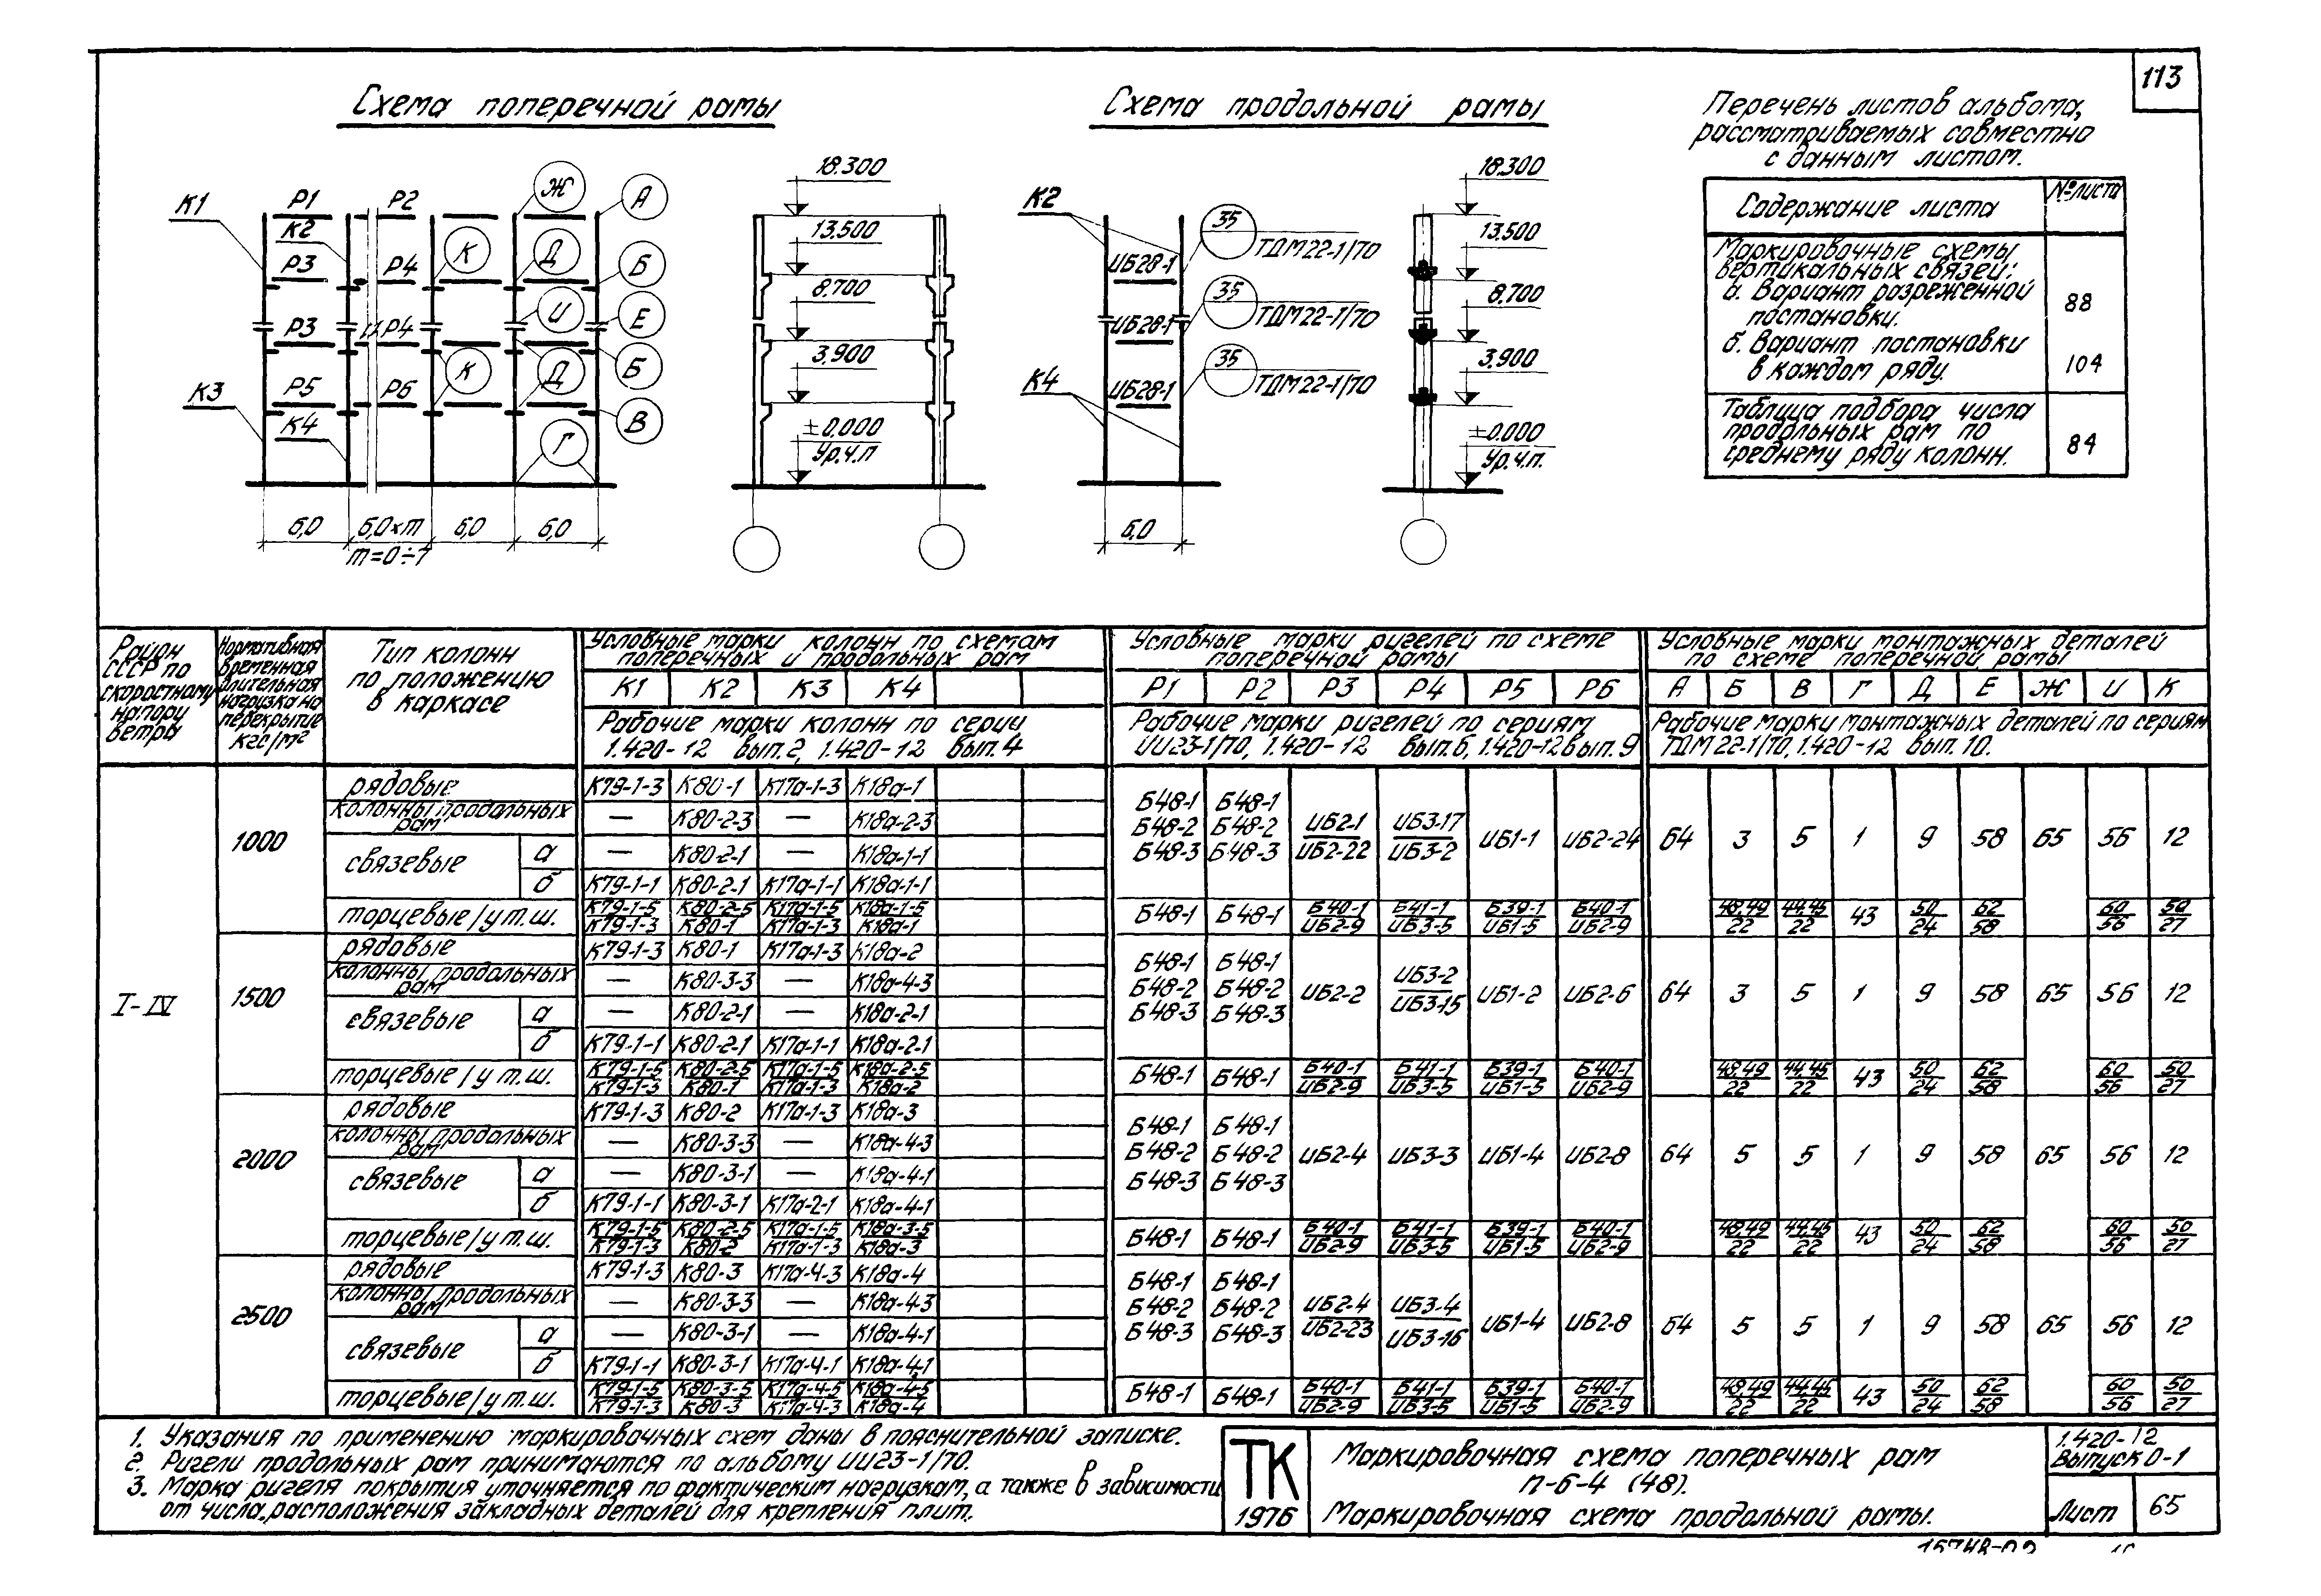 113
Схема поперечной рамы
К1
Р1
Р2
К2
Р3
Р4
Р3
Р4
Р5
Р6
К3
К4
Ж
А
К
Д
Б
И
Е
К
Д
Б
Г
В
6,0
6,0×m
6,0
6,0
m=0÷7
18.300
13.500
8.700
3.900
±0.000
Ур.ч.п
Схема продольной рамы
К2
К4
ИБ28-1
ИБ28-1
ИБ28-1
35
ТДМ22-1/70
35
ТДМ22-1/70
35
ТДМ22-1/70
6,0
18.300
13.500
8.700
3.900
±0.000
Ур.ч.п.
Перечень листов альбома,
рассматриваемых совместно
с данным листом.
Содержание листа | № листа
Маркировочные схемы
вертикальных связей:
а. Вариант разреженной
постановки. | 88
б. Вариант постановки
в каждом ряду. | 104
Таблица подбора числа
продольных рам по
среднему ряду колонн. | 84
Район
СССР по
скоростному
напору
ветра
Нормативная
временная
длительная
нагрузка на
перекрытие
кгс/м²
Тип колонн
по положению
в каркасе
Условные марки колонн по схемам
поперечных и продольных рам
К1 К2 К3 К4
Рабочие марки колонн по серии
1.420-12 вып.2, 1.420-12 вып.4
Условные марки ригелей по схеме
поперечной рамы
Р1 Р2 Р3 Р4 Р5 Р6
Рабочие марки ригелей по сериям
ИИ23-1/70, 1.420-12 вып.6, 1.420-12 вып.9
Условные марки монтажных деталей
по схеме поперечной рамы
А Б В Г Д Е Ж И К
Рабочие марки монтажных деталей по сериям
ТДМ22-1/70, 1.420-12 вып.10.
I-IV
1000
рядовые К79-1-3 К80-1 К17а-1-3 К18а-1
колонны продольных рам — К80-2-3 — К18а-2-3
связевые а — К80-2-1 — К18а-1-1
б К79-1-1 К80-2-1 К17а-1-1 К18а-1-1
Б48-1 Б48-1
Б48-2 Б48-2 ИБ2-1 ИБ3-17
Б48-3 Б48-3 ИБ2-22 ИБ3-2 ИБ1-1 ИБ2-24
64 3 5 1 9 58 65 56 12
торцевые/у т.ш. К79-1-5/К79-1-3 К80-2-5/К80-1 К17а-1-5/К17а-1-3 К18а-1-5/К18а-1 Б48-1 Б48-1 Б40-1/ИБ2-9 Б41-1/ИБ3-5 Б39-1/ИБ1-5 Б40-1/ИБ2-9 48,49/22 44,45/22 43 50/24 62/58 60/56 50/27
1500
рядовые К79-1-3 К80-1 К17а-1-3 К18а-2
колонны продольных рам — К80-3-3 — К18а-4-3
связевые а — К80-2-1 — К18а-2-1
б К79-1-1 К80-2-1 К17а-1-1 К18а-2-1
Б48-1 Б48-1
Б48-2 Б48-2 ИБ2-2 ИБ3-2
Б48-3 Б48-3 ИБ3-15 ИБ1-2 ИБ2-6
64 3 5 1 9 58 65 56 12
торцевые/у т.ш. К79-1-5/К79-1-3 К80-2-5/К80-1 К17а-1-5/К17а-1-3 К18а-2-5/К18а-2 Б48-1 Б48-1 Б40-1/ИБ2-9 Б41-1/ИБ3-5 Б39-1/ИБ1-5 Б40-1/ИБ2-9 48,49/22 44,45/22 43 50/24 62/58 60/56 50/27
2000
рядовые К79-1-3 К80-2 К17а-1-3 К18а-3
колонны продольных рам — К80-3-3 — К18а-4-3
связевые а — К80-3-1 — К18а-4-1
б К79-1-1 К80-3-1 К17а-2-1 К18а-4-1
Б48-1 Б48-1
Б48-2 Б48-2 ИБ2-4 ИБ3-3 ИБ1-4 ИБ2-8
Б48-3 Б48-3
64 5 5 1 9 58 65 56 12
торцевые/у т.ш. К79-1-5/К79-1-3 К80-2-5/К80-2 К17а-1-5/К17а-1-3 К18а-3-5/К18а-3 Б48-1 Б48-1 Б40-1/ИБ2-9 Б41-1/ИБ3-5 Б39-1/ИБ1-5 Б40-1/ИБ2-9 48,49/22 44,45/22 43 50/24 62/58 60/56 50/27
2500
рядовые К79-1-3 К80-3 К17а-4-3 К18а-4
колонны продольных рам — К80-3-3 — К18а-4-3
связевые а — К80-3-1 — К18а-4-1
б К79-1-1 К80-3-1 К17а-4-1 К18а-4-1
Б48-1 Б48-1
Б48-2 Б48-2 ИБ2-4 ИБ3-4
Б48-3 Б48-3 ИБ2-23 ИБ3-16 ИБ1-4 ИБ2-8
64 5 5 1 9 58 65 56 12
торцевые/у т.ш. К79-1-5/К79-1-3 К80-3-5/К80-3 К17а-4-5/К17а-4-3 К18а-4-5/К18а-4 Б48-1 Б48-1 Б40-1/ИБ2-9 Б41-1/ИБ3-5 Б39-1/ИБ1-5 Б40-1/ИБ2-9 48,49/22 44,45/22 43 50/24 62/58 60/56 50/27
1. Указания по применению маркировочных схем даны в пояснительной записке.
2. Ригели продольных рам принимаются по альбому ИИ23-1/70.
3. Марка ригеля покрытия уточняется по фактическим нагрузкам, а также в зависимости
от числа, расположения закладных деталей для крепления плит.
ТК
1976
Маркировочная схема поперечных рам
п-6-4 (48).
Маркировочная схема продольной рамы.
1.420-12
Выпуск 0-1
Лист 65